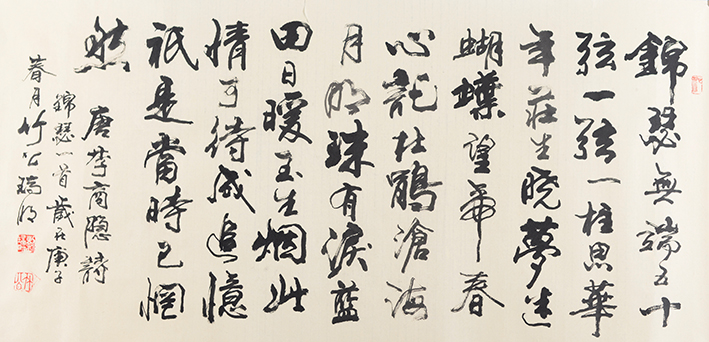 錦瑟無端五十
弦一弦一柱思華
年莊生曉夢迷
蝴蝶望帝春
心託杜鵑滄海
月明珠有淚藍
田日暖玉生烟此
情可待成追憶
祇是當時已惘
然
唐李商隱詩
錦瑟一首歲在庚子
春月竹公瑞明